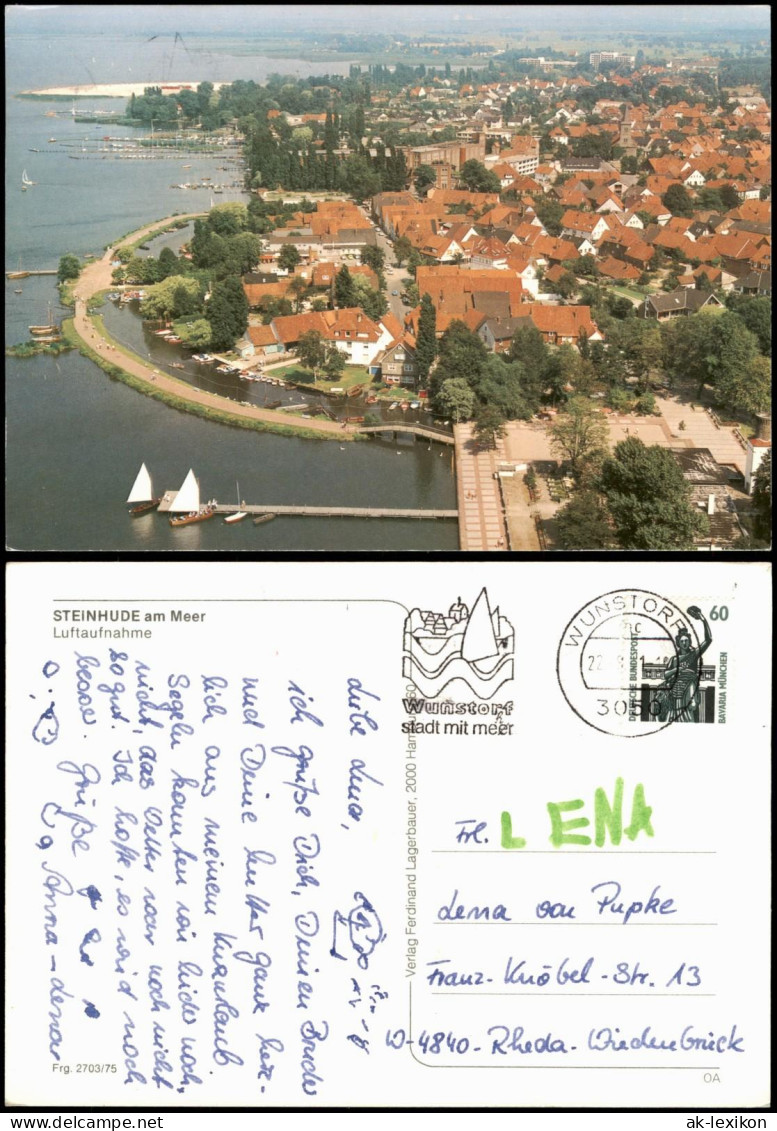 STEINHUDE am Meer
Luftaufnahme
Liebe Lena,
ich grüße Dich, Deinen Bruder
und Deine Mutter ganz herz-
lich aus meinem Kurzurlaub
Segeln konnten wir leider noch
nicht, das Wetter war noch nicht
so gut. Ich hoffe, es wird noch
besser. Grüße
Anna-Lena
Frg. 2703/75
Verlag Ferdinand Lagerbauer, 2000 Hamburg 60
Wunstorf
stadt mit meer
WUNSTORF
3050
60
DEUTSCHE BUNDESPOST
BAVARIA MÜNCHEN
Frl. LENA
Lena von Pupke
Franz-Knöbel-Str. 13
W-4840-Rheda-Wiedenbrück
OA
ak-lexikon
© www.ak-ansichtskarten.de
ak-lexikon.com